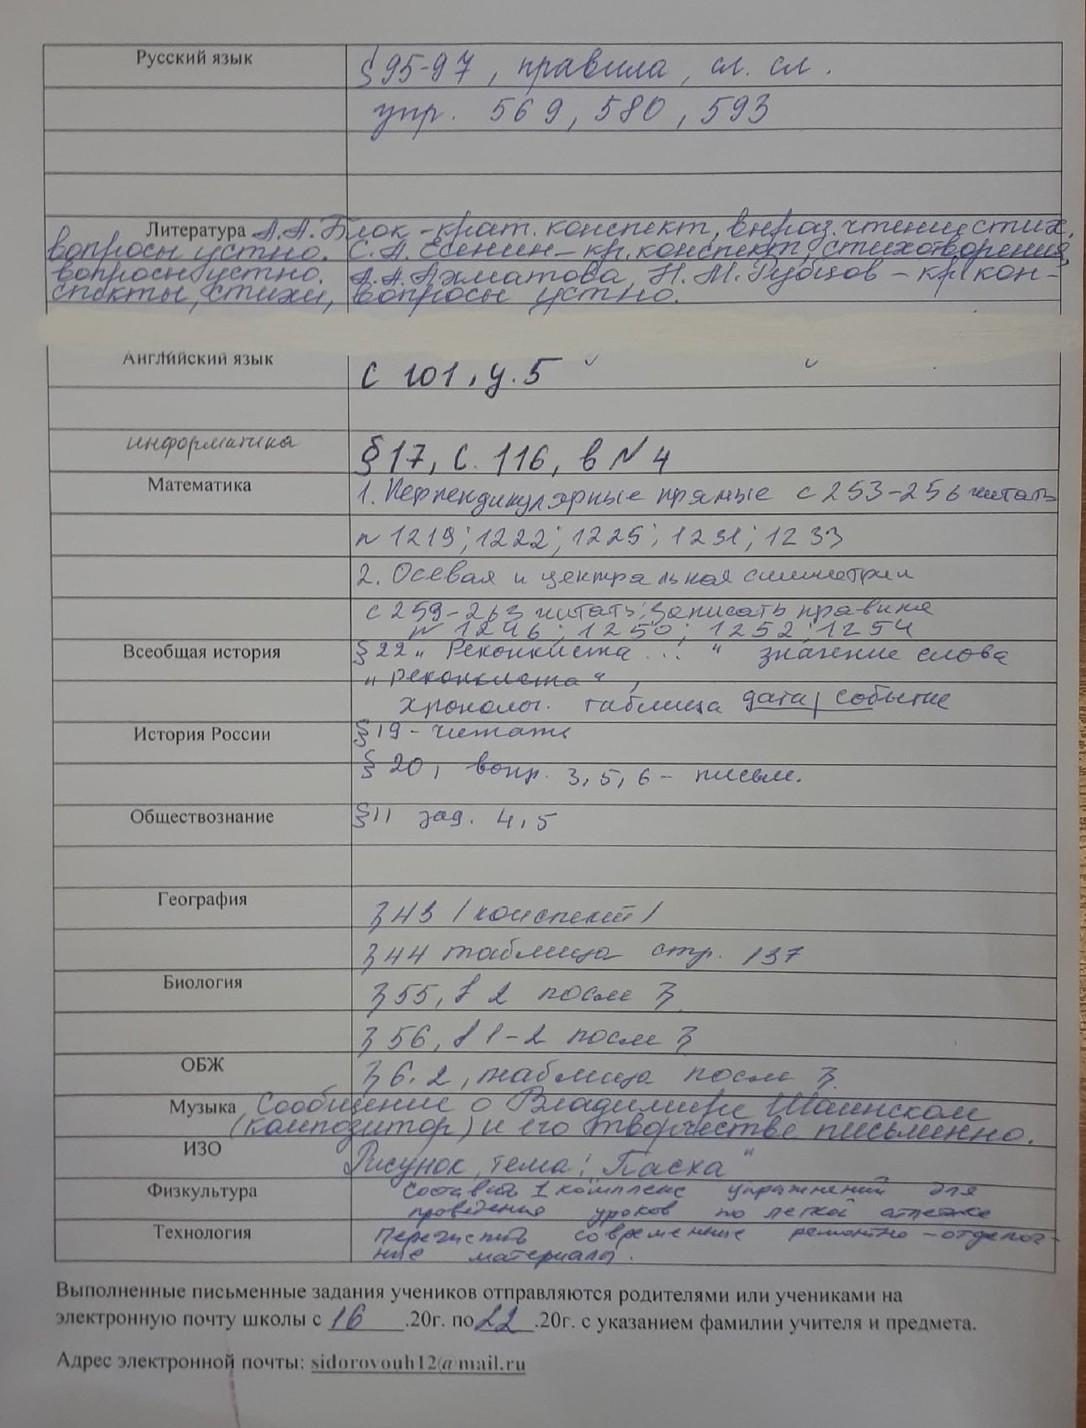 Русский язык § 95-97, правила, сл. сл.
упр. 569, 580, 593
Литература А.А. Блок - крат. конспект, выраз. чтение стих,
вопросы устно. С.А. Есенин - кр. конспект, стихотворения,
вопросы устно. А.А. Ахматова, Н.М. Рубцов - кр. кон-
спекты, стихи, вопросы устно.
Английский язык с 101, у. 5
информатика § 17, с. 116, в № 4
Математика 1. Перпендикулярные прямые с 253-256 читать
№ 1219; 1222; 1225; 1231; 1233
2. Осевая и центральная симметрии
с 259-263 читать; записать правила
№ 1246; 1250; 1252; 1254
Всеобщая история § 22 „Реконкиста ..." значение слова
„реконкиста",
хронолог. таблица дата/событие
История России § 19 - читать
§ 20, вопр. 3, 5, 6 - письм.
Обществознание § 11 зад. 4, 5
География § 43 /конспект/
§ 44 таблица стр. 137
Биология § 55, 2 после §
§ 56, 1-2 после §
ОБЖ § 6.2, таблица после §
Музыка Сообщение о Владимире Шаинском
(композитор) и его творчестве письменно.
ИЗО Рисунок, тема: "Пасха"
Физкультура Составить 1 комплекс упражнений для
проведения уроков по легкой атлетике
Технология Перечислить современные ремонтно-отделоч-
ные материалы.
Выполненные письменные задания учеников отправляются родителями или учениками на
электронную почту школы с 16 .20г. по 22 .20г. с указанием фамилии учителя и предмета.
Адрес электронной почты: sidorovouh12@mail.ru